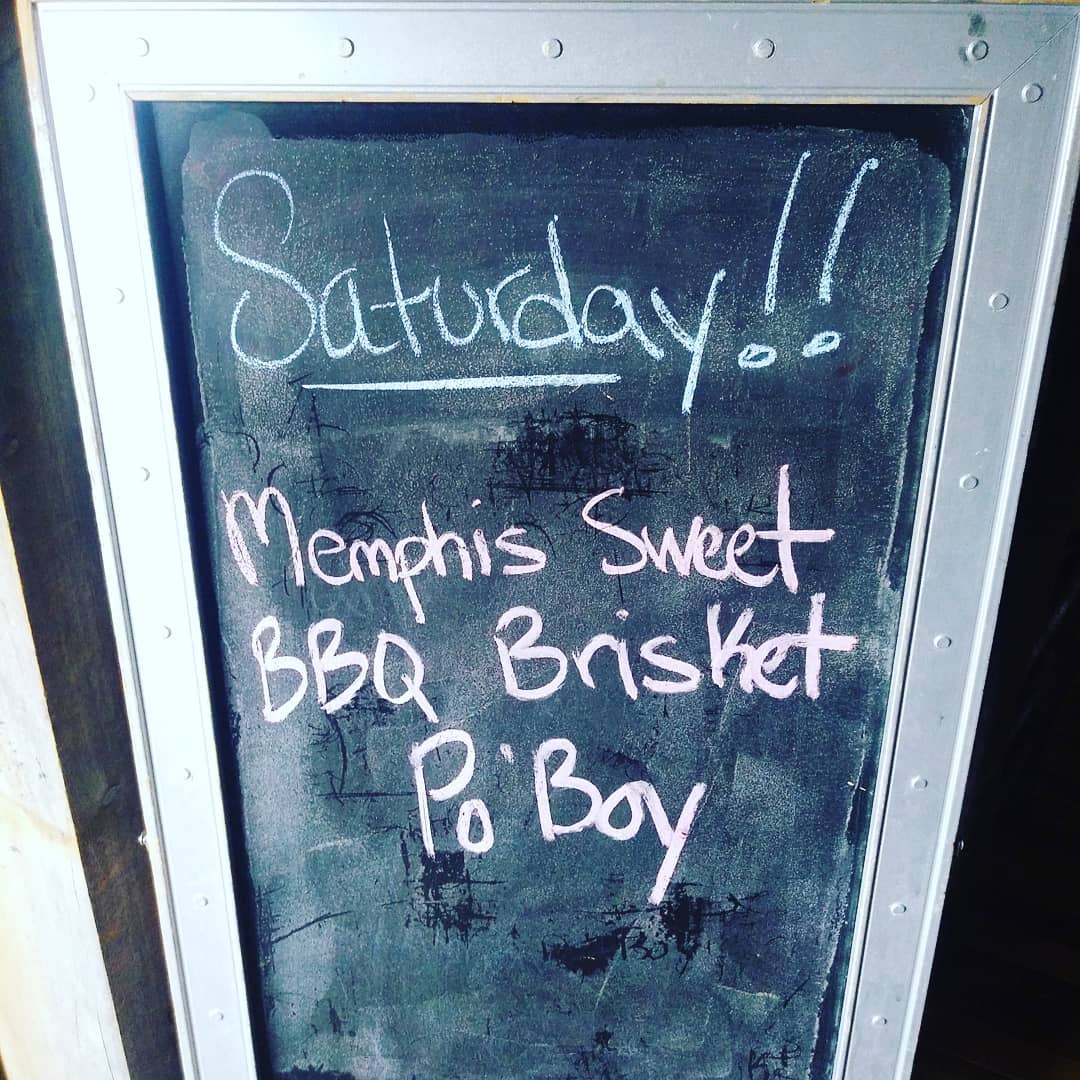 Saturday!!
Memphis Sweet
BBQ Brisket
Po'Boy